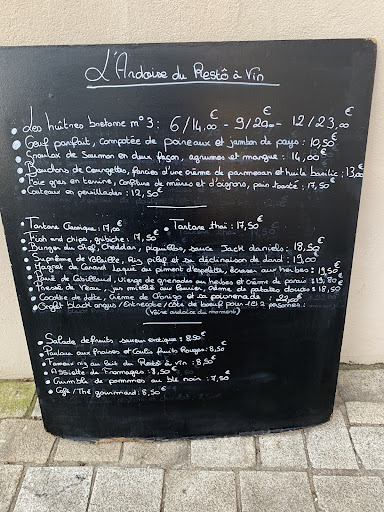 L'Ardoise du Restô à Vin
Les huîtres bretonne n°3 : 6/14,00€ - 9/20,00€ - 12/23,00€
Oeuf parfait, compotée de poireaux et jambon de pays : 10,50€
Gravlax de Saumon en deux façon, agrumes et mangue : 14,00€
Bouchons de Courgettes, farcies d'une crème de parmesan et huile basilic : 13,00€
Foie gras en terrine, confiture de mûres et d'oignons, pain toasté : 17,50€
Couteaux en persillades : 12,50€
Tartare Classique : 17,00€ Tartare thaï : 17,50€
Fish and chips, gribiche : 17,50€
Burger du Chef, Cheddar, piquillos, sauce Jack daniels : 18,50€
Suprême de Volaille, Riz pilaf et sa déclinaison de 19,00€
Magret de Canard Laqué au piment d'espelette, écrasé aux herbes : 19,50€
Dos de Cabillaud, Vierge de grenades aux herbes et crème de panais : 19,80€
Pressé de Veau, jus mijoté aux Laurier, dôme de patates douces : 19,50€
Cocotte de lotte, Crème de Chorizo et sa poivronade : 22,00€
Black angus / Entrecôte / Côte de boeuf pour 1 et 2 personnes :
(Voire ardoise du moment)
Salade de fruits saveur exotique : 8,50€
Pavlova aux fraises et Coulis fruits Rouges : 8,50€
Tiramisu au du Restô à Vin : 8,50€
Assiette de Fromages : 8,50€
Crumble de pommes au blé noir : 7,50€
Café/Thé gourmand : 8,50€